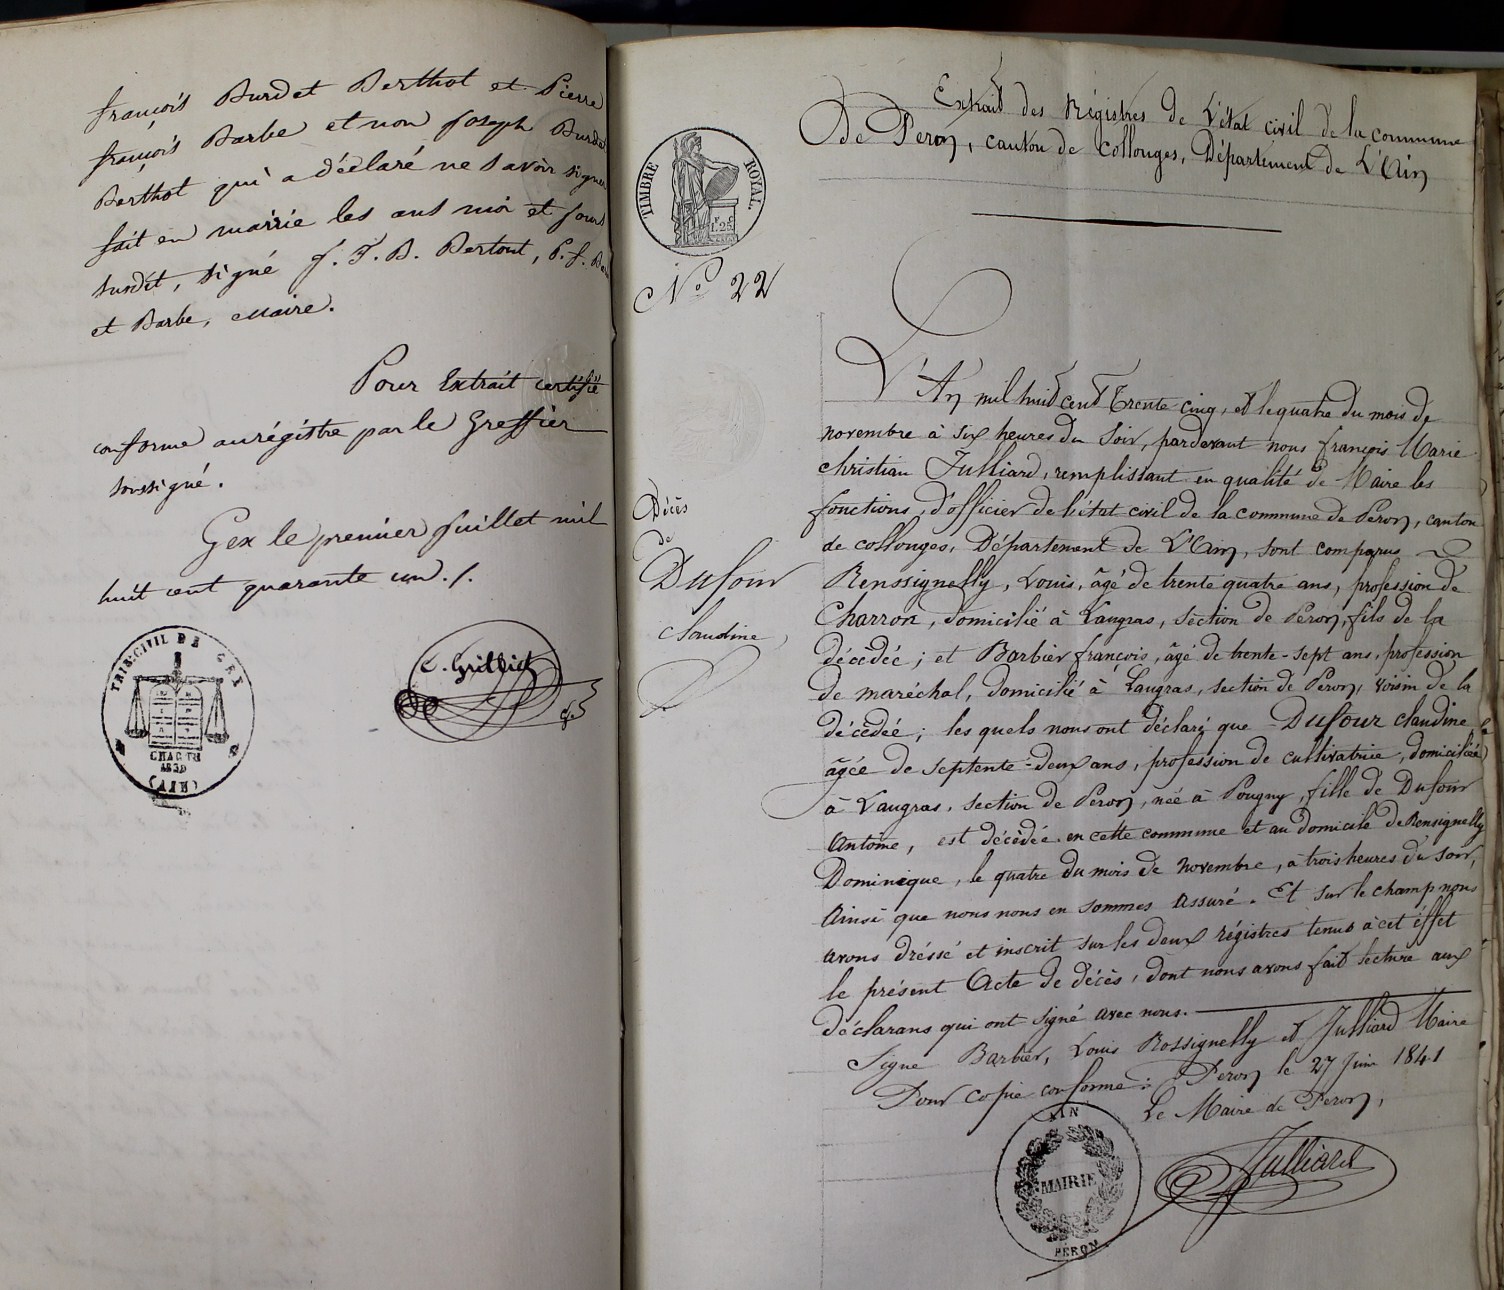 françois Burdet Berthot et Pierre
françois Barbe et non Joseph Burdet
Berthot qui a déclaré ne savoir signer
fait en mairie les ans moi et jours
susdit, signé J. F. B. Bertout, P. f.
et Barbe, Maire.
Pour Extrait certifié
conforme au régistre par le Greffier
soussigné.
Gex le premier Juillet mil
huit cent quarante un ./.
TRIB: CIVIL DE GEX
CHARTE
1830
(AIN)
Extrait des Régistres de L'état civil de la commune
de Peron, canton de Collonges, Département de L'Ain
TIMBRE ROYAL
1.25
N.o 22
L'An mil huit cent Trente cinq, et le quatre du mois de
novembre à six heures du soir, pardevant nous françois Marie
christian Julliard, remplissant en qualité de Maire les
fonctions, d'officier de l'état civil de la commune de Peron, canton
de collonges, Département de L'Ain, sont comparus
Renssignelly, Louis, âgé de trente quatre ans, profession de
Charron, domicilié à Laugras, section de Peron, fils de la
décédée; et Barbier françois, âgé de trente-sept ans, profession
de maréchal, domicilié à Laugras, section de Peron, voisin de la
décédée; les quels nous ont déclaré que Dufour claudine
âgée de septente-deux ans, profession de cultivatrice, domiciliée
à Laugras, section de Peron, née à Pougny, fille de Dufour
Antoine, est décédée en cette commune et au domicile de Rensignelly
Dominique, le quatre du mois de novembre, à trois heures du soir,
Ainsi que nous nous en sommes assuré. Et sur le champ nous
avons dréssé et inscrit sur les deux régistres tenus à cet éffet
le présent Acte de décès, dont nous avons fait lecture aux
déclarans qui ont signé avec nous.
Signé Barbier, Louis Rossignelly et Julliard Maire
Pour copie conforme: Peron le 27 Juin 1841
Le Maire de Peron,
Décès
de
Dufour
claudine
AIN
MAIRIE
PÉRON
Julliard